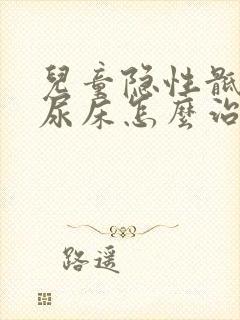 兒童隐性骶
尿床怎麼治
路遥